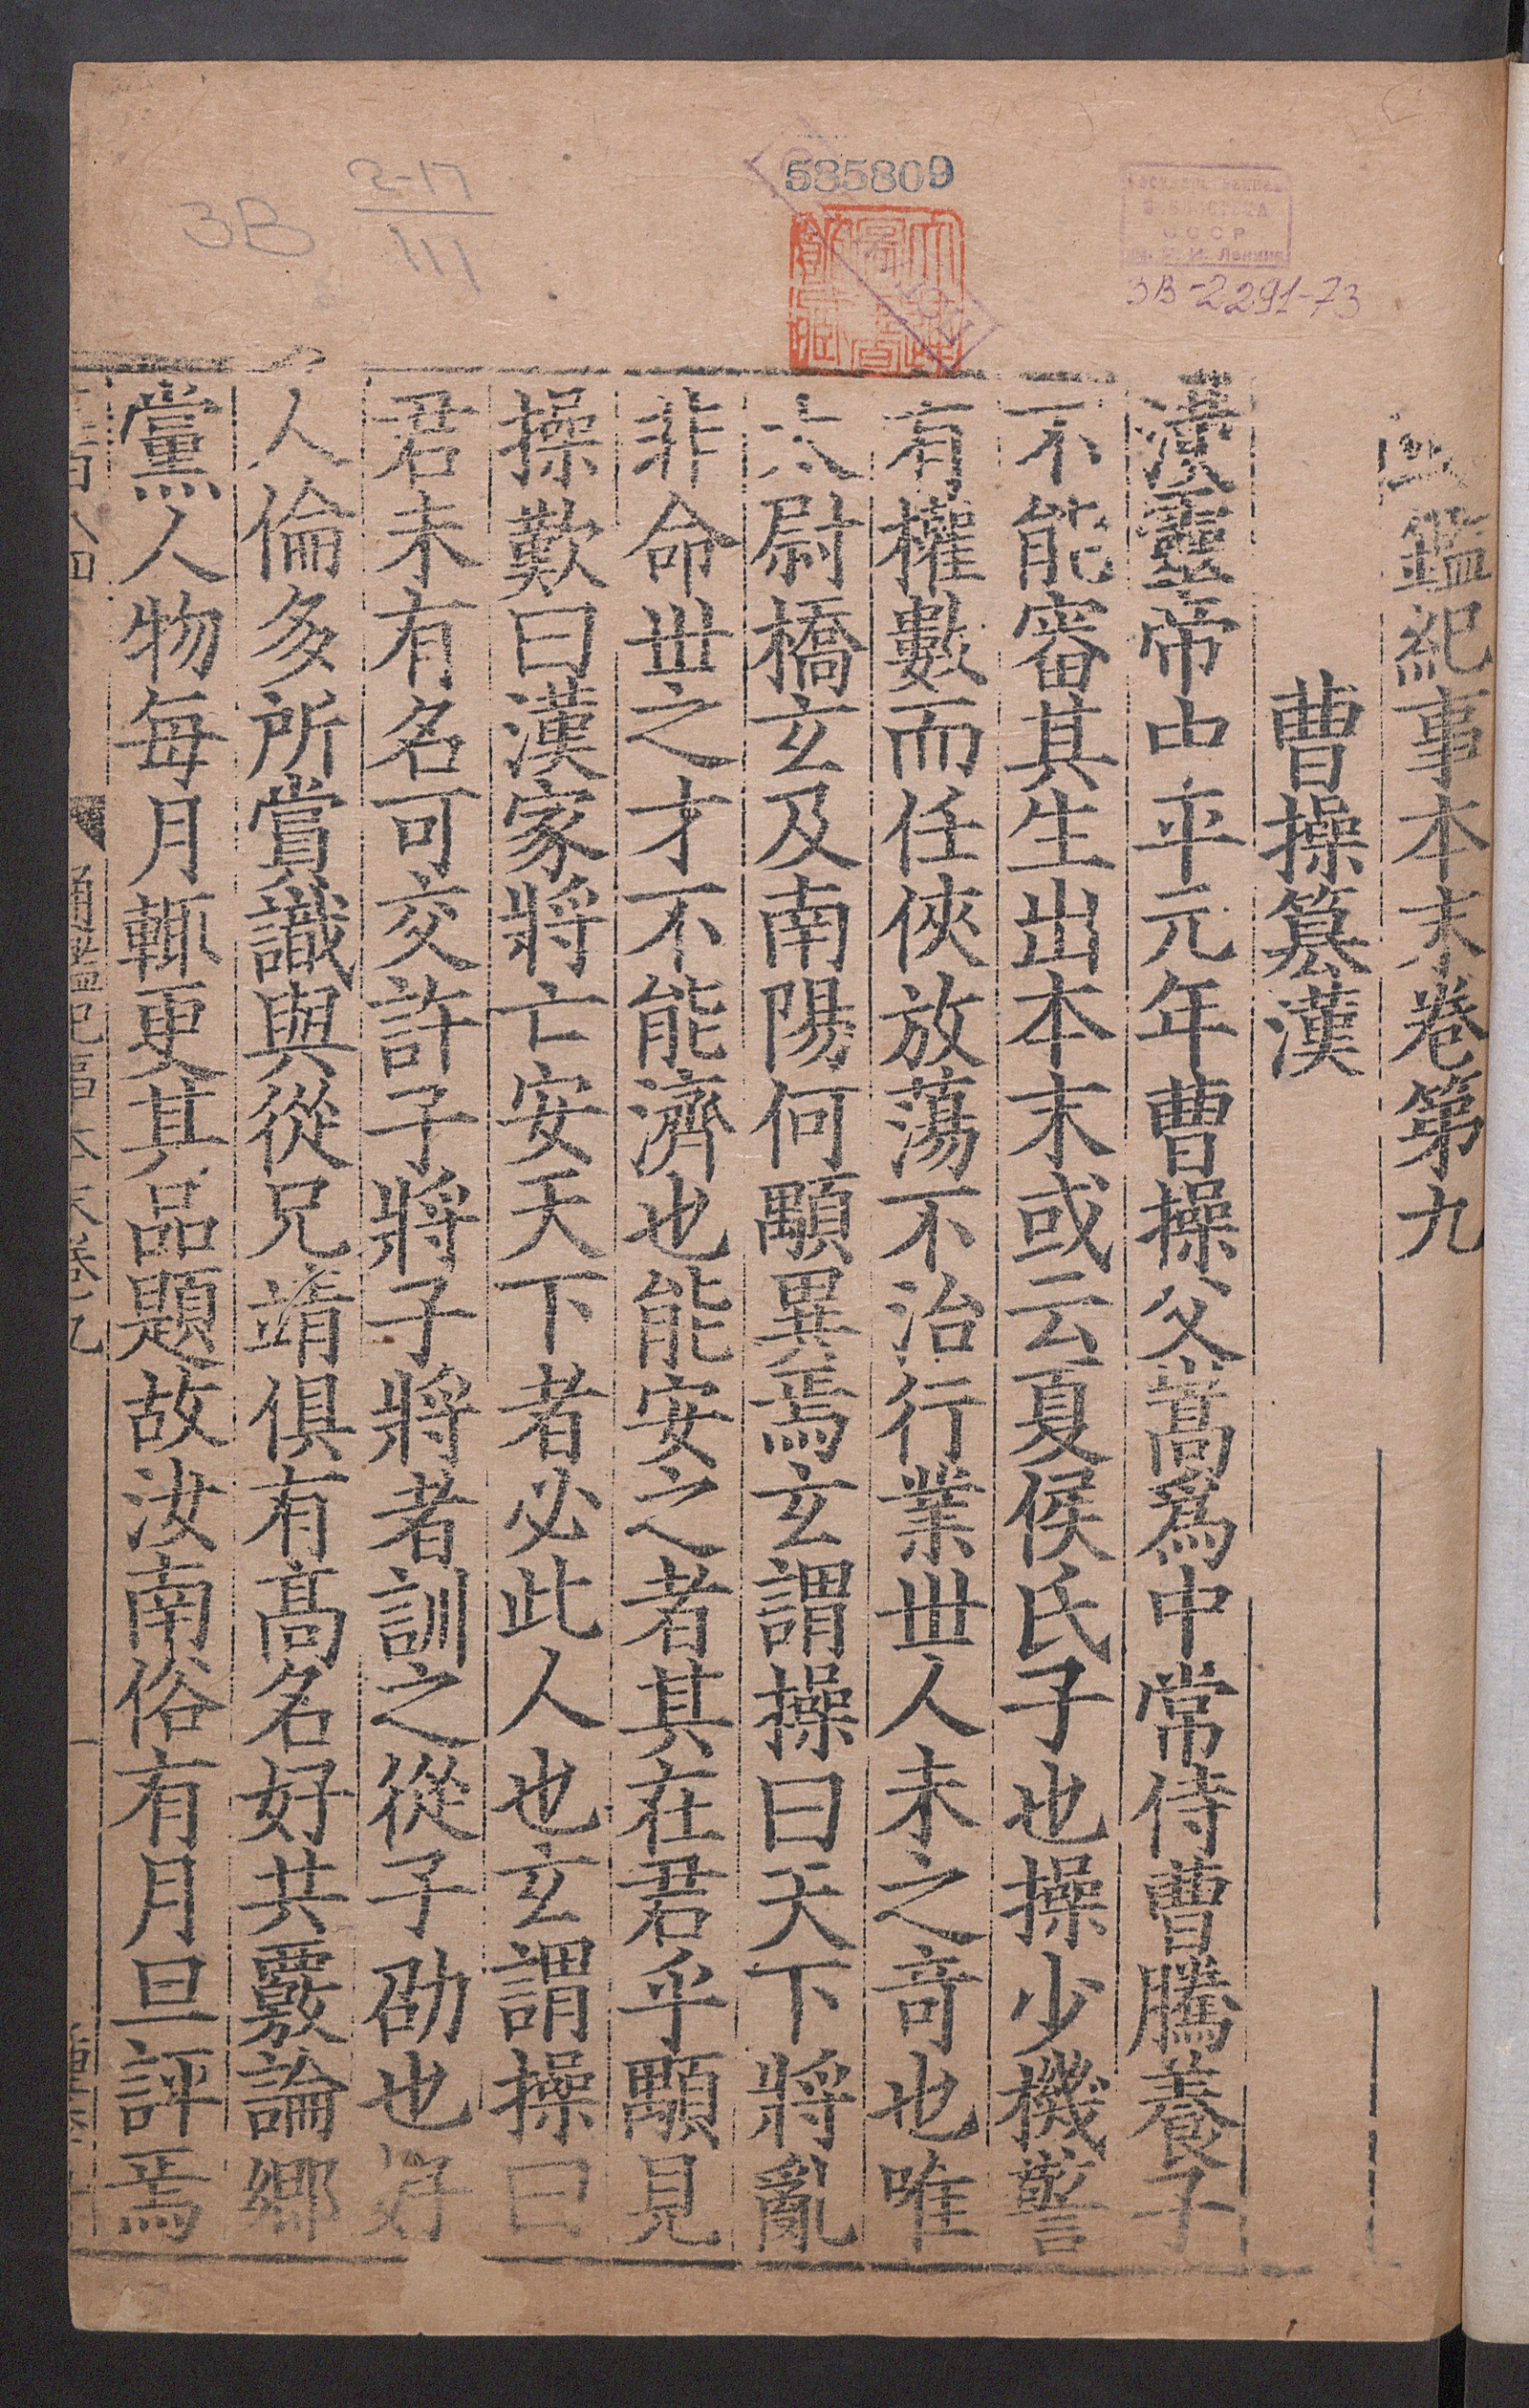 585809
2-17
111
3В
СССР
3В-2291-73
鑑紀事本末卷第九
曹操篡漢
漢靈帝中平元年曹操父嵩爲中常侍曹騰養子
不能審其生出本末或云夏侯氏子也操少機警
有權數而任俠放蕩不治行業丗人未之奇也唯
太尉橋玄及南陽何顒異焉玄謂操曰天下將亂
非命丗之才不能濟也能安之者其在君乎顒見
操歎曰漢家將亡安天下者必此人也玄謂操曰
君未有名可交許子將子將者訓之從子劭也好
人倫多所賞識與從兄靖俱有高名好共覈論鄉
黨人物每月輒更其品題故汝南俗有月旦評焉